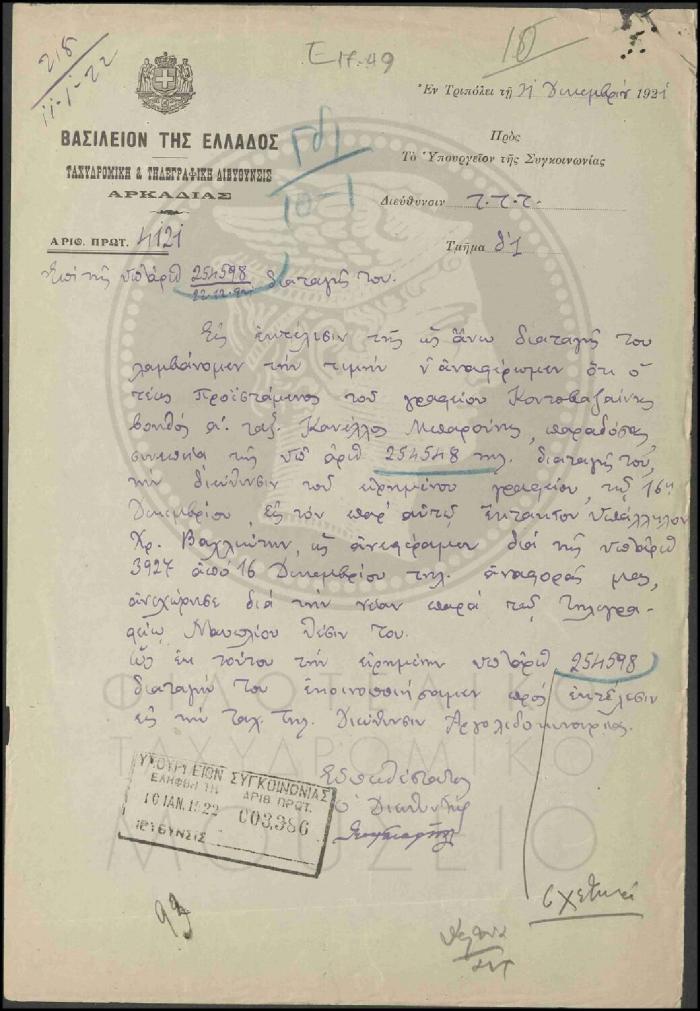 218
11-1-22
Ε17.49
10
Ἐν Τριπόλει τῇ 31 Δεκεμβρίου 1921
ΒΑΣΙΛΕΙΟΝ ΤΗΣ ΕΛΛΑΔΟΣ
ΤΑΧΥΔΡΟΜΙΚΗ & ΤΗΛΕΓΡΑΦΙΚΗ ΔΙΕΥΘΥΝΣΙΣ
ΑΡΚΑΔΙΑΣ
10-1
Πρὸς
Τὸ Ὑπουργεῖον τῆς Συγκοινωνίας
Διεύθυνσιν τ.τ.τ.
Τμῆμα δ1
ΑΡΙΘ. ΠΡΩΤ. 4121
Ἐπὶ τῆς ὑπ' ἀριθ 254598 διαταγῆς του.
Εἰς ἐκτέλεσιν τῆς ὡς ἄνω διαταγῆς του
λαμβάνομεν τὴν τιμὴν ν' ἀναφέρωμεν ὅτι ὁ
τέως προϊστάμενος τοῦ γραφείου Κοντοβαζαίνης
βοηθὸς α'. ταξ. Κανέλλος Μπαρούνης, παραδόσας,
συνεπείᾳ τῆς ὑπ' ἀριθ 254548 τηλ. διαταγῆς του,
τὴν διεύθυνσιν τοῦ εἰρημένου γραφείου, τῇ 16ῃ
Δεκεμβρίου, εἰς τὸν παρ' αὐτῷ ἔκτακτον ὑπάλληλον
Χρ. Βαχλιώτην, ὡς ἀνεφέραμεν διὰ τῆς ὑπ' ἀριθ
3927 ἀπὸ 16 Δεκεμβρίου τηλ. ἀναφορᾶς μας,
ἀνεχώρησε διὰ τὴν νέαν παρὰ τῷ Τηλεγρα-
φείῳ Ναυπλίου θέσιν του.
Ὡς ἐκ τούτου τὴν εἰρημένην ὑπ' ἀριθ 254598
διαταγήν του ἐκοινοποιήσαμεν πρὸς ἐκτέλεσιν
εἰς τὴν ταχ. τηλ. Διεύθυνσιν Ἀργολιδοκορινθίας.
Εὐπειθέστατος
ὁ Διευθυντής
ΥΠΟΥΡΓΕΙΟΝ ΣΥΓΚΟΙΝΩΝΙΑΣ
ΕΛΗΦΘΗ ΤΗ ΑΡΙΘ ΠΡΩΤ.
10 ΙΑΝ. 1922 003,386
ΔΙΕΥΘΥΝΣΙΣ
ΦΙΛΟΤΕΛΙΚΟ
ΤΑΧΥΔΡΟΜΙΚΟ
ΜΟΥΣΕΙΟ
σχετικά
93